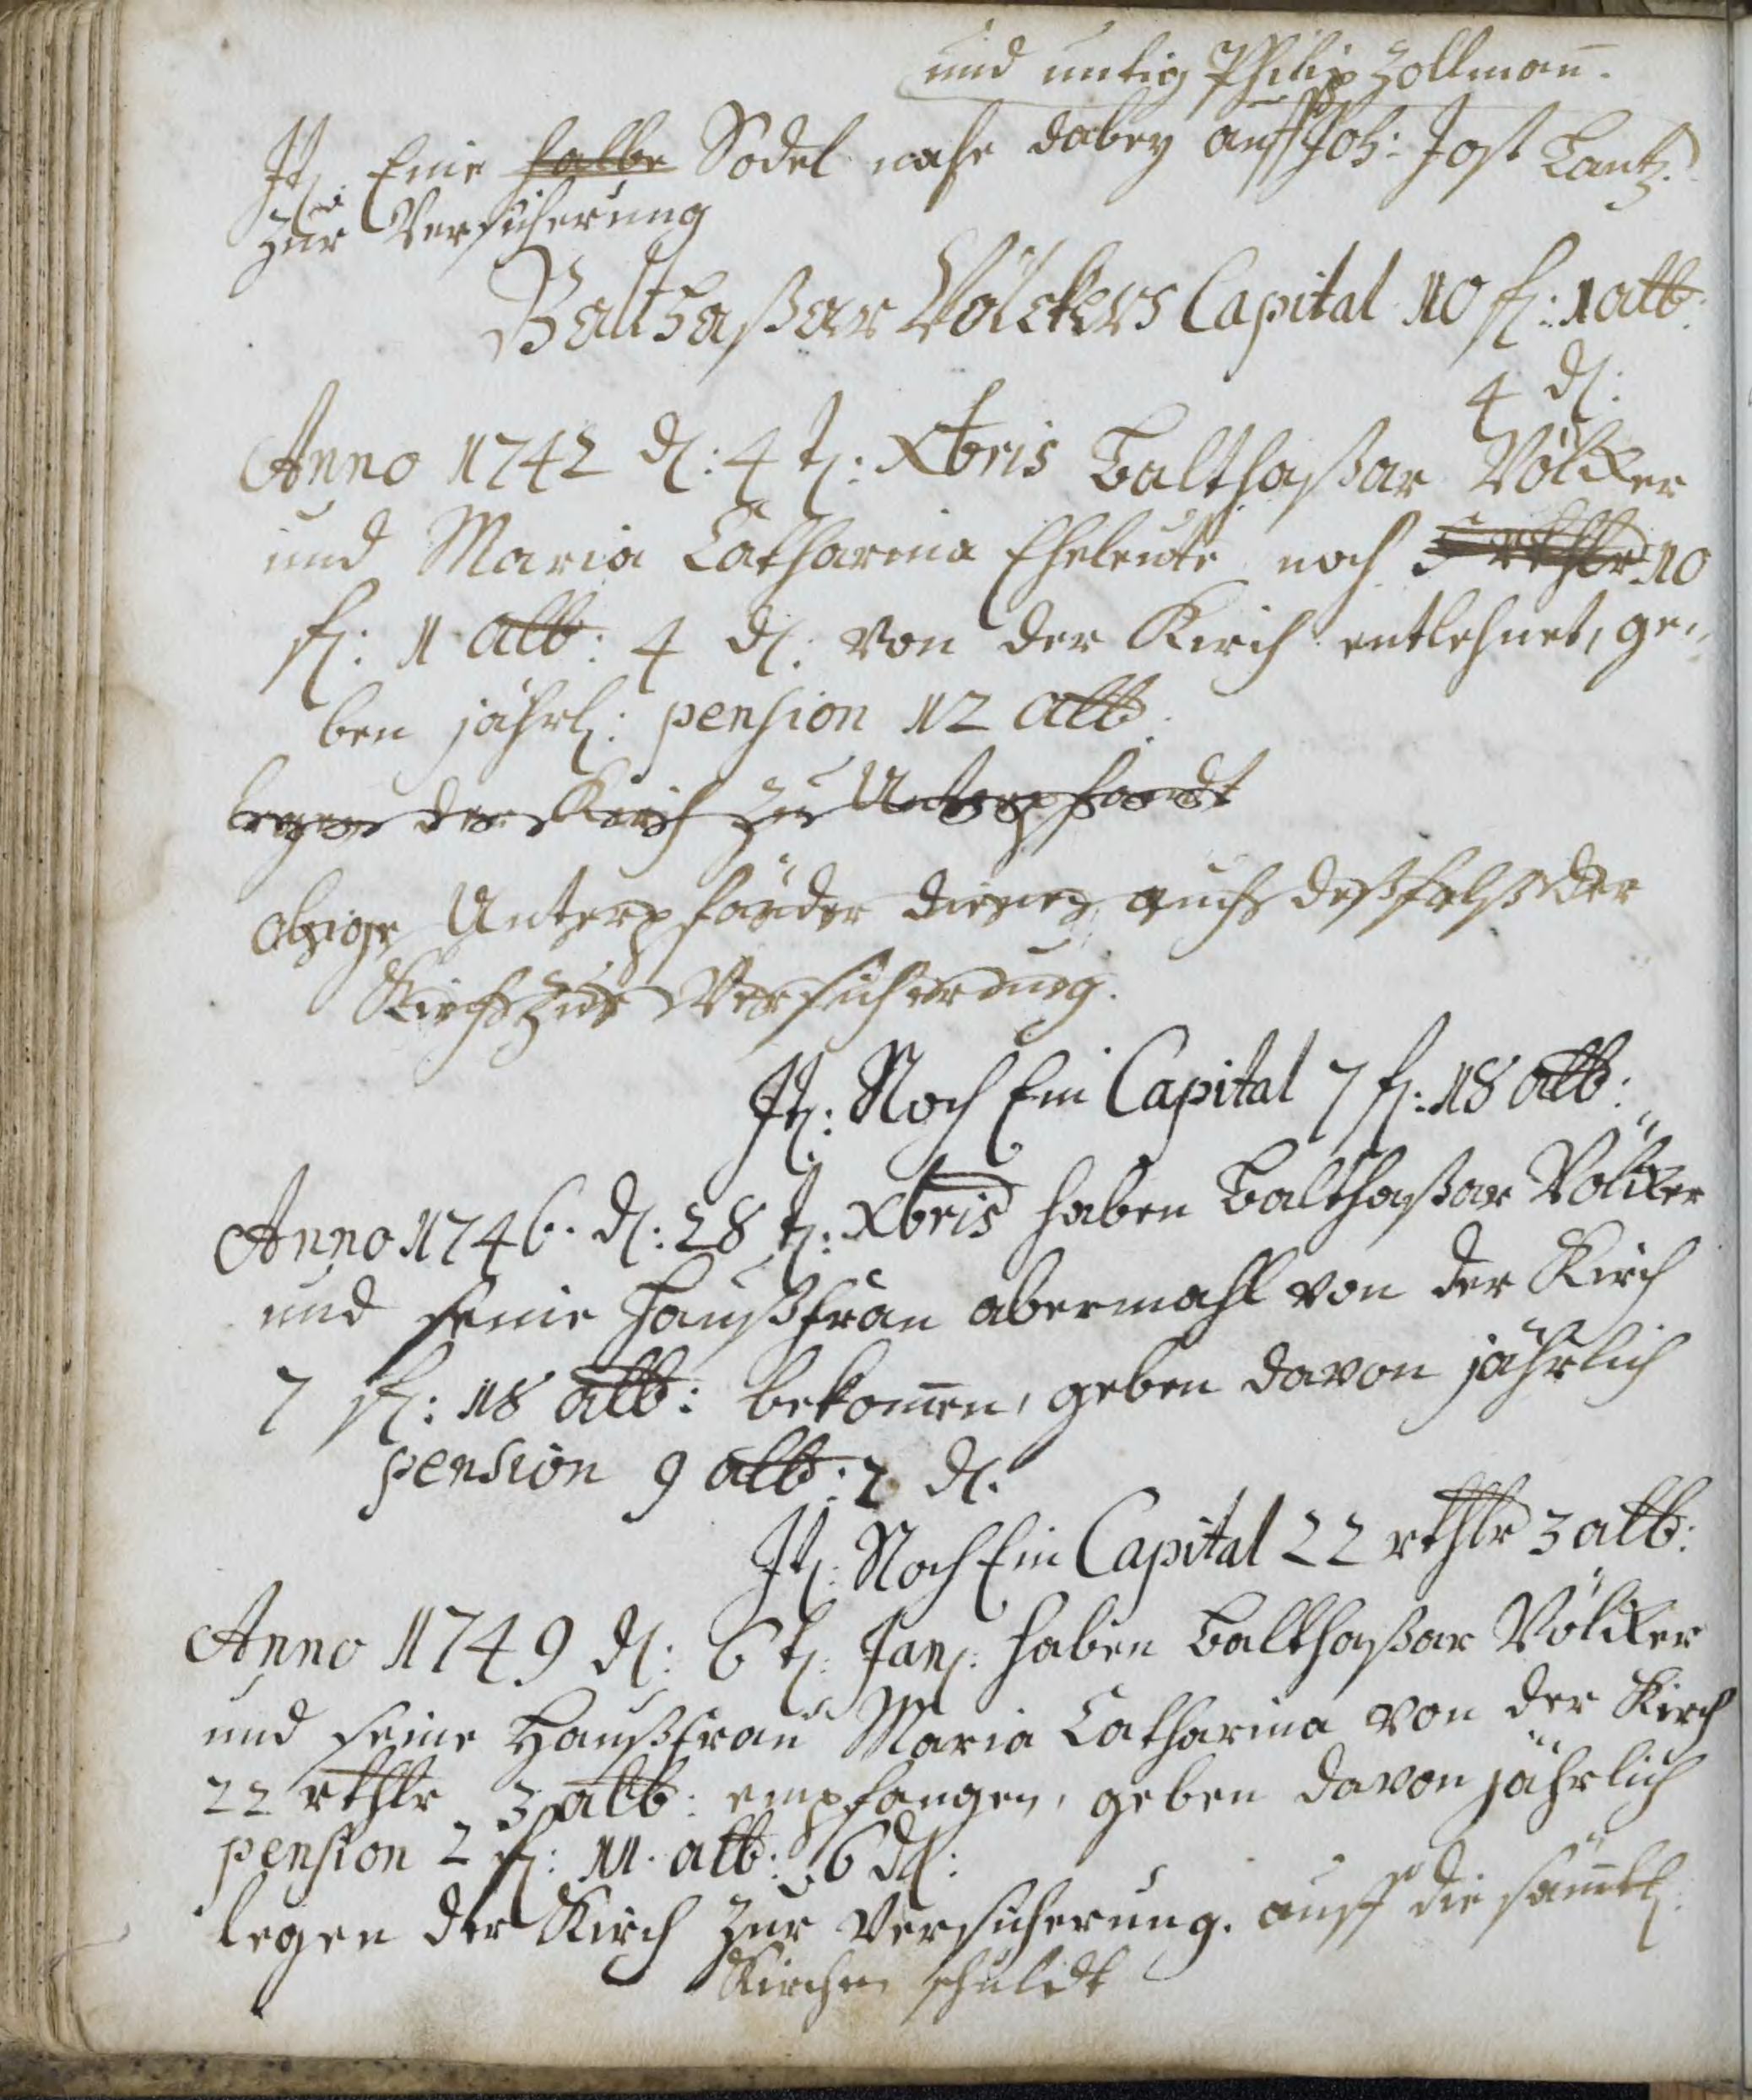 und untig Philip Zollman̄.
It: Eine halbe Sodel nahe dabey auff Joh: Jost Lantz.
zur Versicherung
Balthaßar Völckers Capital 10 fl: 1 alb:
4 d:
Anno 1742 d: 4 t: Xbris Balthaßar Völcker
und Maria Catharina Eheleute noch 5 rthlr 10
fl: 1 alb: 4 d: von der Kirch entlehnet, ge„
ben jährl: pension 12 alb.
legen der Kirch zu Unterpfandt
obige Unterpfänder dienen auch deßfalß der
Kirch zur Versicherung.
It: Noch Ein Capital 7 fl: 18 alb:
Anno 1746. d: 28 t: Xbris haben Balthaßar Völcker
und seine Haußfrau abermahl von der Kirch
7 fl: 18 alb: bekom̄en, geben davon jährlich
pension 9 alb: 2 d.
It: Noch Ein Capital 22 rthlr 3 alb:
Anno 1749 d: 6 t: Jan: haben Balthaßar Völcker
und seine Haußfrau Maria Catharina von der Kirch
22 rthlr 3 alb: empfangen, geben davon jährlich
pension 2 fl: 11. alb: 6 d:
legen der Kirch zur Versicherung. auff die säm̄tl:
Kirchen schuldt